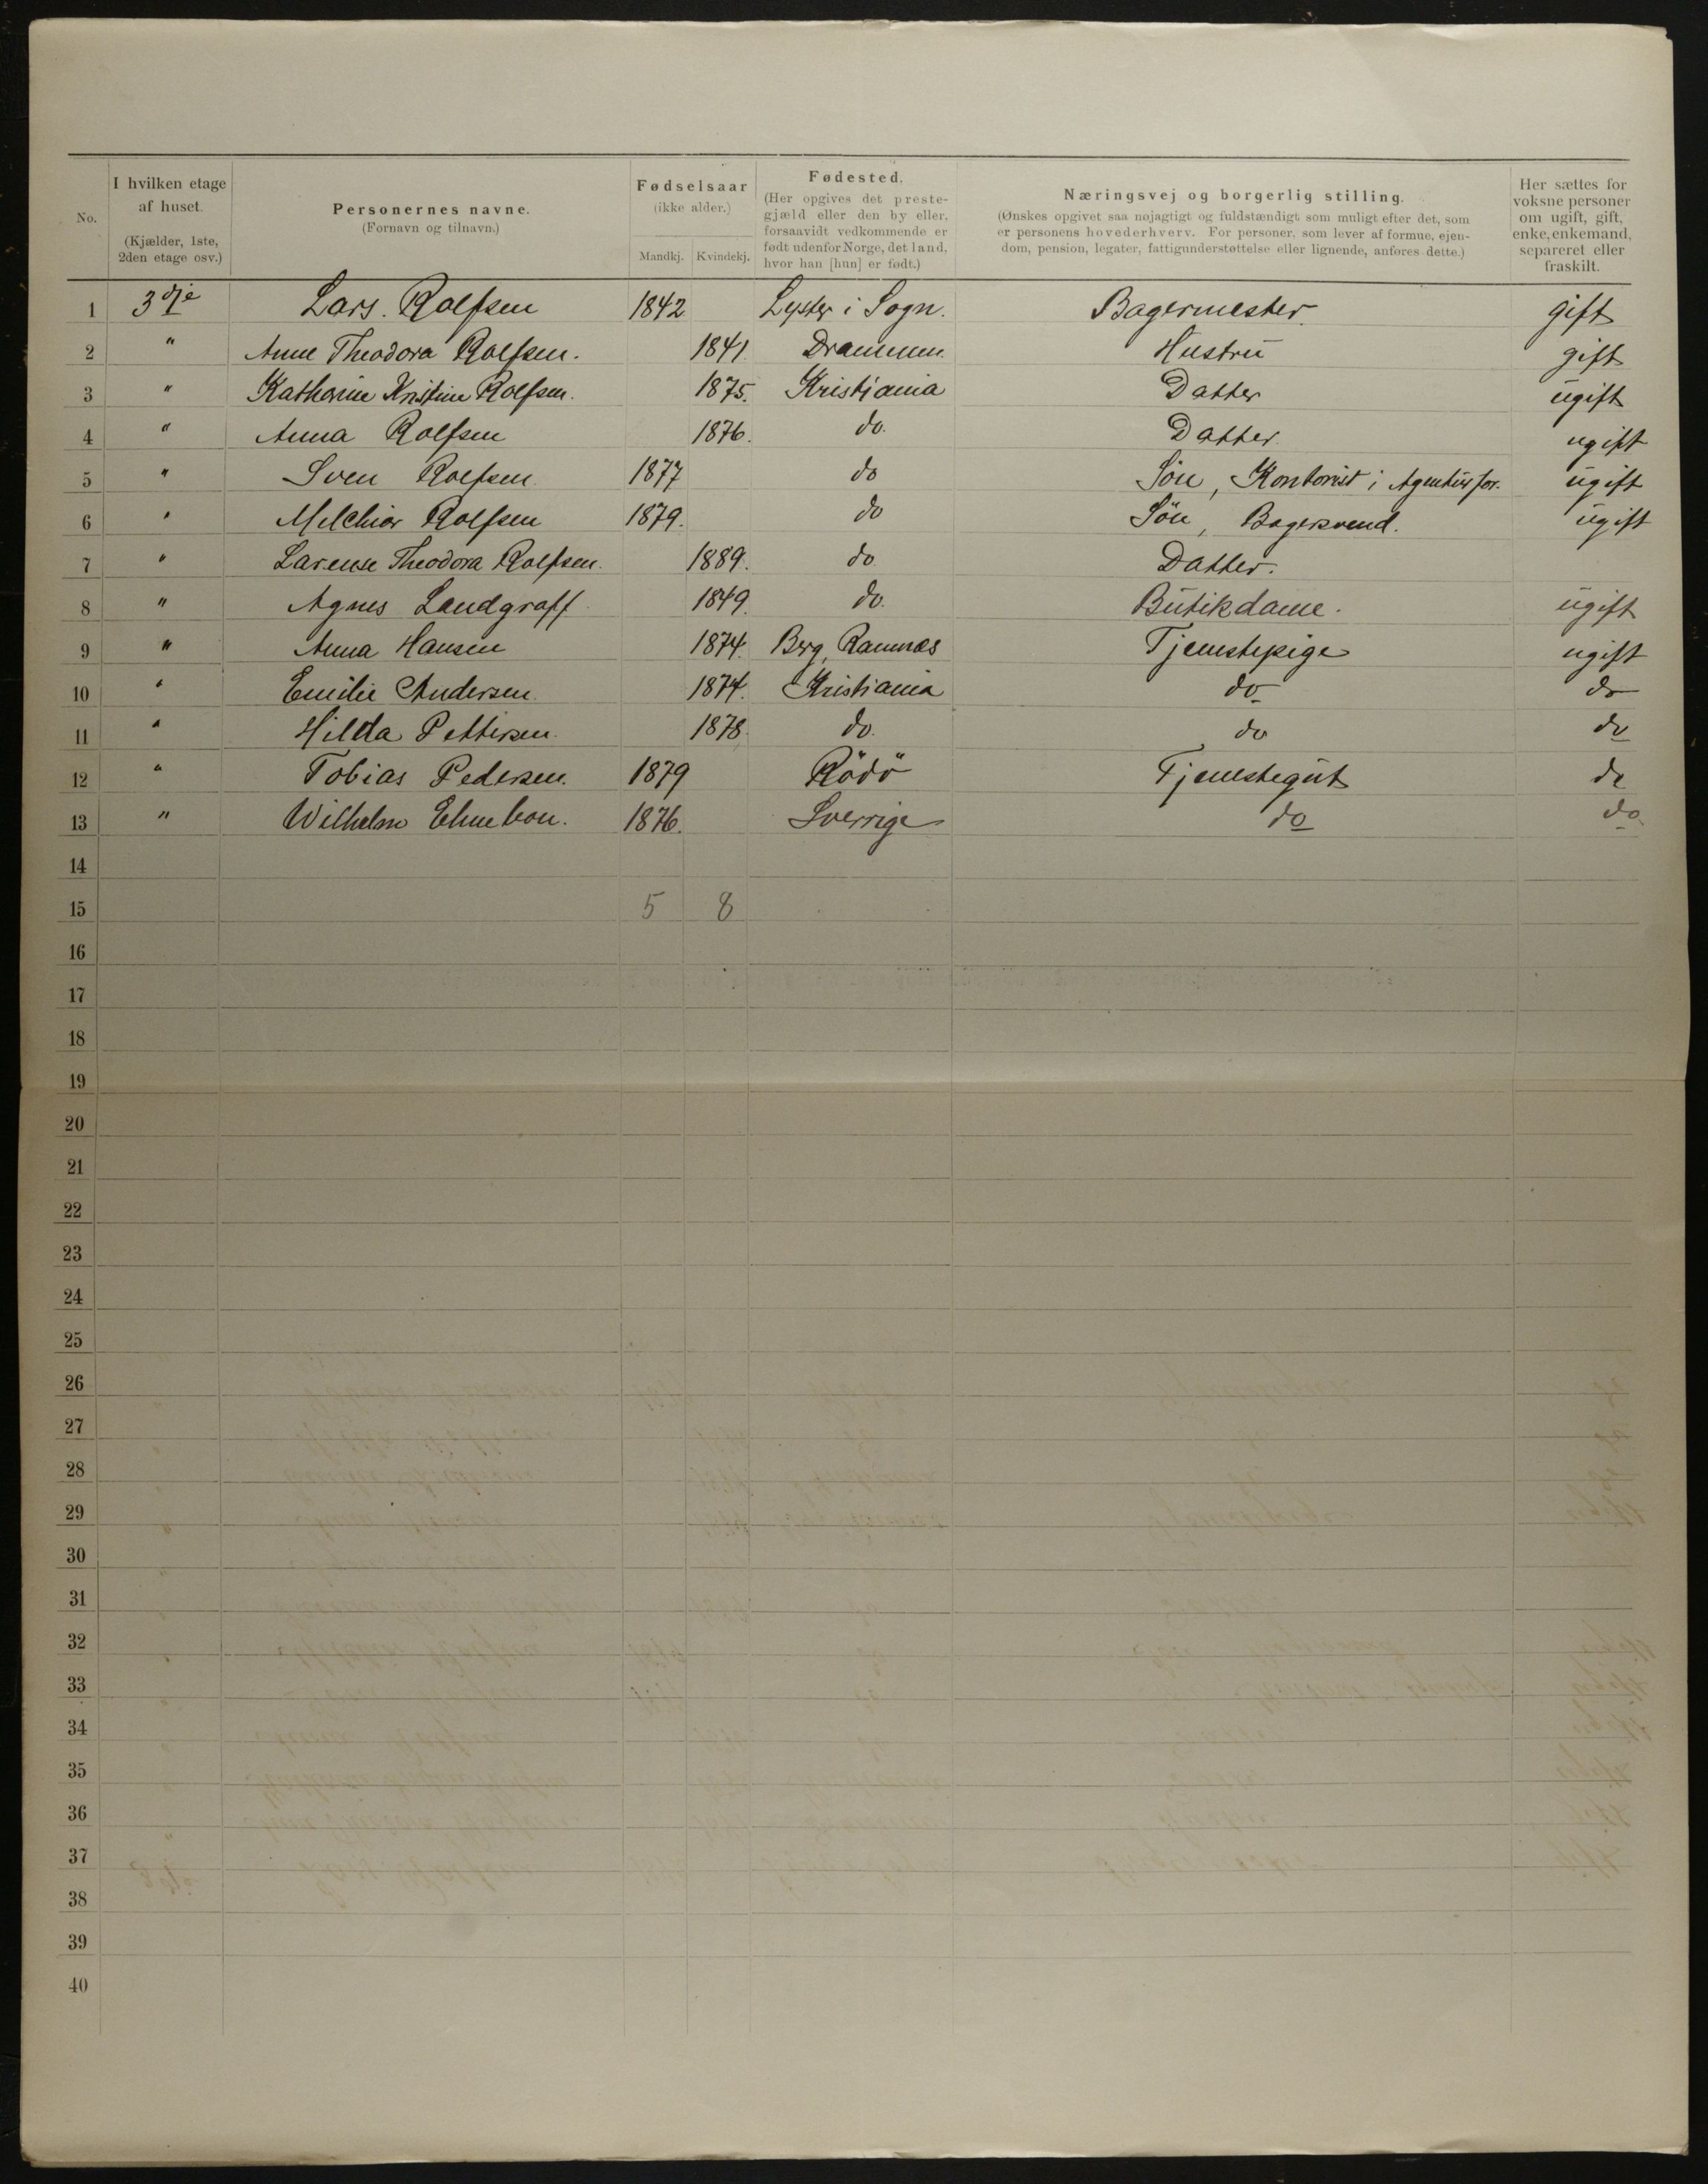 No.
I hvilken etage af huset.
(Kjælder, 1ste, 2den etage osv.)
Personernes navne.
(Fornavn og tilnavn.)
Fødselsaar
(ikke alder.)
Mandkj. Kvindekj.
Fødested.
(Her opgives det preste-
gjæld eller den by eller,
forsaavidt vedkommende er
født udenfor Norge, det land,
hvor han [hun] er født.)
Næringsvej og borgerlig stilling.
(Ønskes opgivet saa nøjagtigt og fuldstændigt som muligt efter det, som
er personens hovederhverv. For personer, som lever af formue, ejen-
dom, pension, legater, fattigunderstøttelse eller lignende, anføres dette.)
Her sættes for
voksne personer
om ugift, gift,
enke, enkemand,
separeret eller
fraskilt.
1 3dje Lars. Rolfsen 1842 Lyster i Sogn. Bagermester. gift
2 " Anne Theodora Rolfsen. 1841 Drammen. Hustrü gift
3 " Katharine Kristine Rolfsen. 1875. Kristiania Datter ügift
4 " Anna Rolfsen 1876. do. Datter. ugift
5 " Sven Rolfsen. 1877 do Sön, Kontorist i Agentürfor. ügift
6 " Melchior Rolfsen 1879. do Sön, Bagersvend. ügift
7 " Larense Theodora Rolfsen. 1889. do Datter.
8 " Agnes Landgraff. 1849. do. Bütikdame. ügift
9 " Anna Hansen 1874. Berg, Ramnæs Tjenstepige ugift
10 " Emilie Andersen. 1874. Kristiania do do
11 " Hilda Pettersen. 1878. do. do do
12 " Tobias Pedersen. 1879 Rödö Tjenstegüt do
13 " Wilhelm 1876. Sverrige do do.
14
15 5 8
16
17
18
19
20
21
22
23
24
25
26
27
28
29
30
31
32
33
34
35
36
37
38
39
40